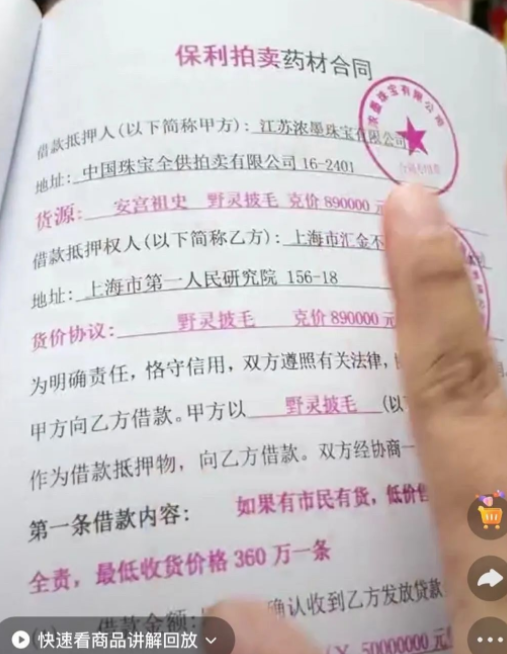 保利拍卖药材合同
借款抵押人(以下简称甲方):江苏浓墨珠宝有限公司
地址:中国珠宝全供拍卖有限公司16-2401
货源:安宫祖史 野灵披毛 克价890000元
借款抵押权人(以下简称乙方):上海市汇金不
地址:上海市第一人民研究院 156-18
货价协议:野灵披毛 克价890000元
为明确责任,恪守信用,双方遵照有关法律,
甲方向乙方借款。甲方以 野灵披毛 (以
作为借款抵押物,向乙方借款。双方经协商一
第一条借款内容: 如果有市民有货,低价售
全责,最低收货价格360万一条
借款金额: 确认收到乙方发放贷款
(¥ 50000000元
快速看商品讲解回放